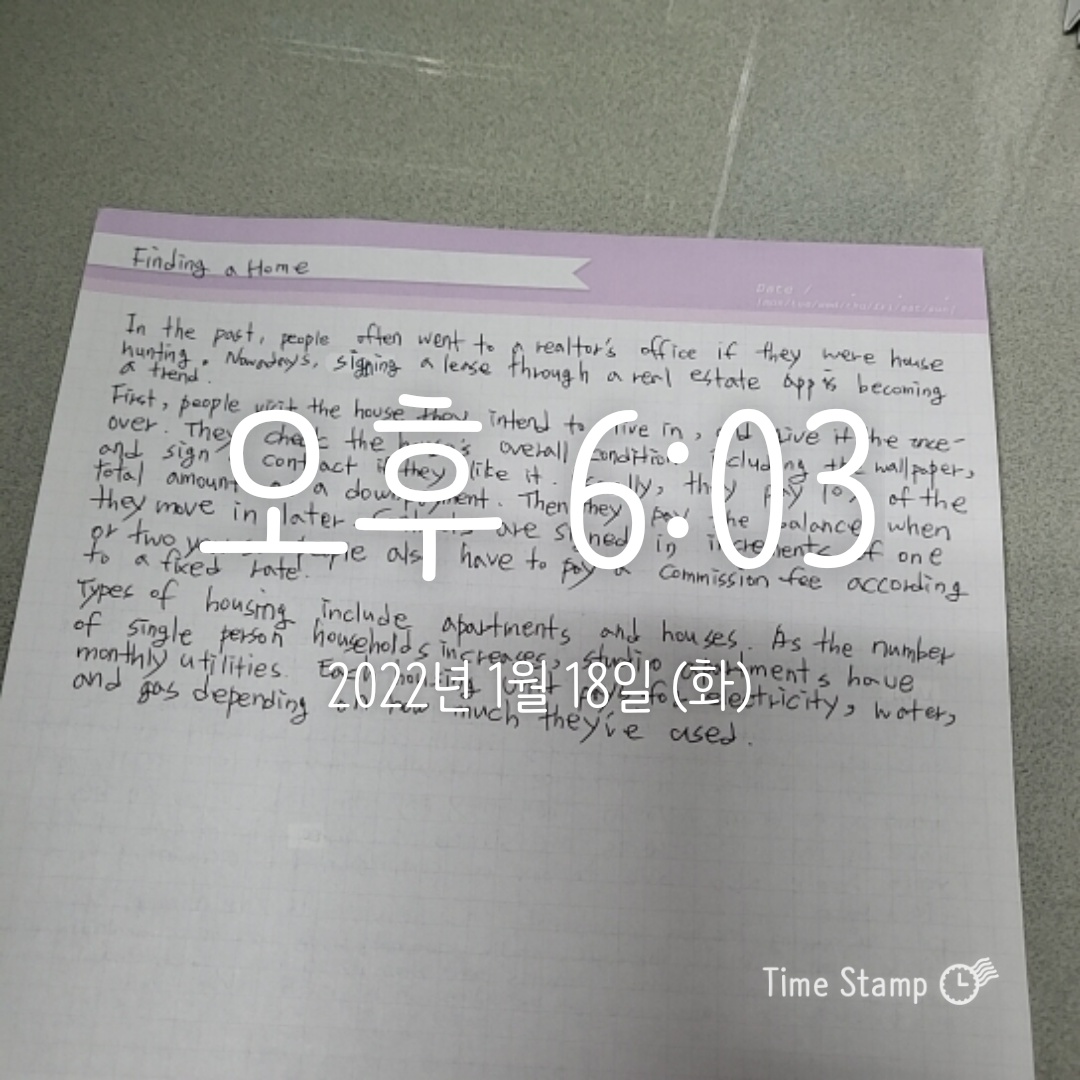 Finding a Home
Date /
In the past, people often went to a realtor's office if they were house
hunting. Nowadays, signing a lease through a real estate app is becoming
a trend.
First, people visit the house they intend to live in, and give it the once-
over. They check the house's overall condition including the wallpaper,
and sign contract if they like it. they pay 10% of the
total amount as a down payment. Then they pay the balance when
they move in later. are signed in increments of one
or two people also have to pay a commission fee according
to a fixed rate.
Types of housing include apartments and houses. As the number
of single person households increases, studio apartments have
monthly utilities. Each housing unit pays for electricity, water,
and gas depending on how much they've used.
오후 6:03
2022년 1월 18일 (화)
Time Stamp